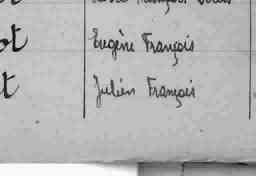 François
ot Eugène François
t Julien François